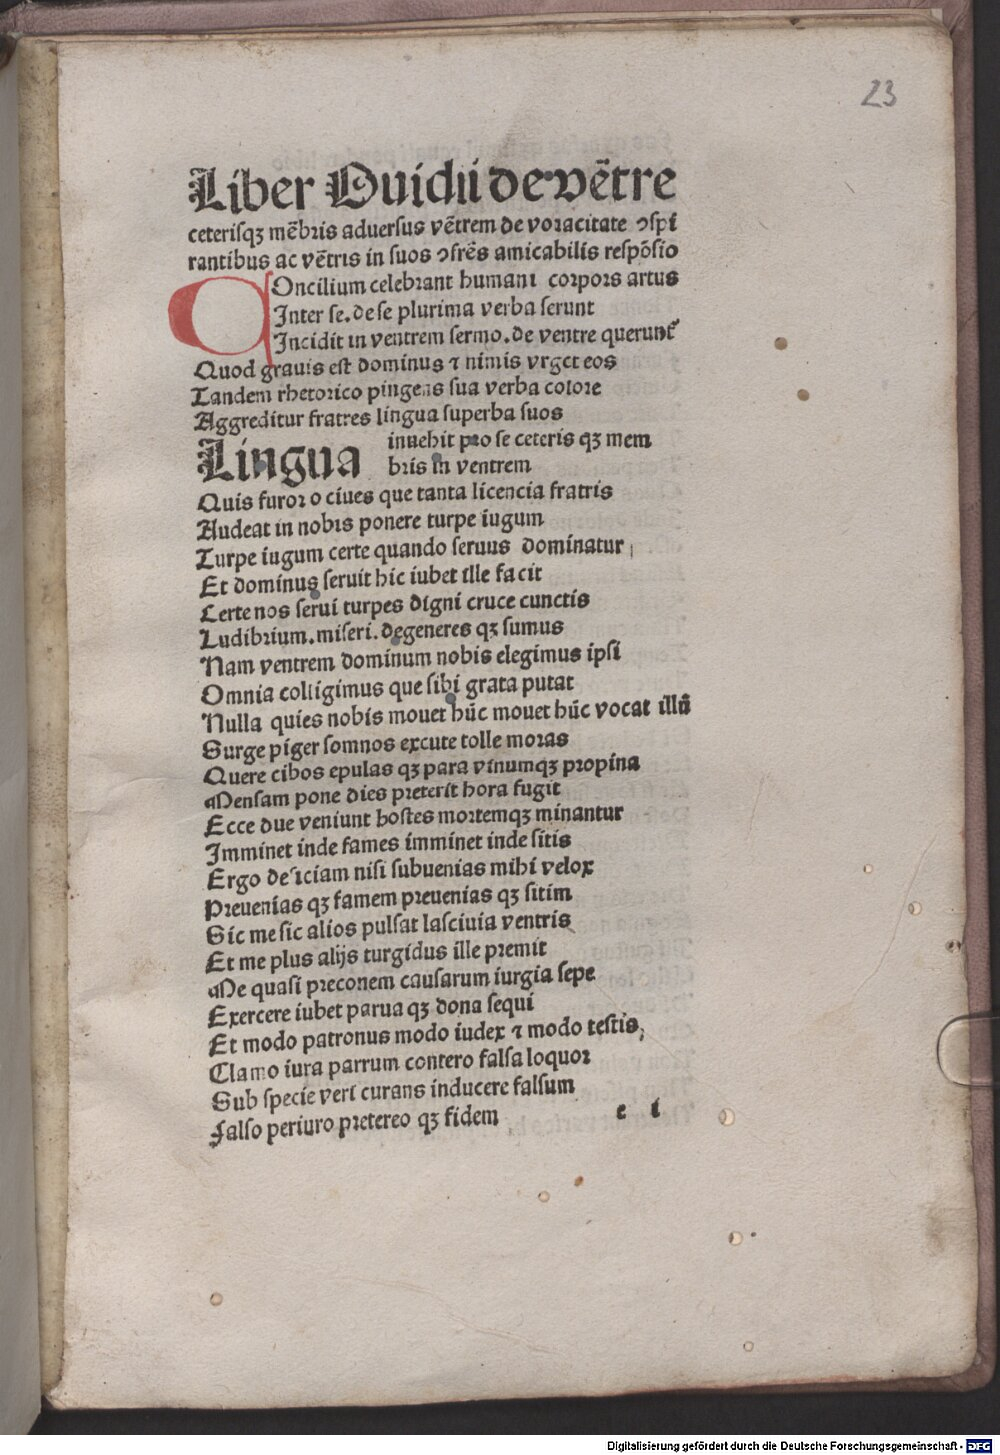 23
Liber Ouidii de vẽtre
ceterisqꝫ mẽbris aduersus vẽtrem de voracitate ꝯspi
rantibus ac vẽtris in suos ꝯfrẽs amicabilis respõsio
COncilium celebrant humani corpors artus
Inter se. de se plurima verba serunt
Incidit in ventrem sermo. de ventre querunt᷑
Quod grauis est dominus ⁊ nimis vrget eos
Tandem rhetorico pingens sua verba colore
Aggreditur fratres lingua superba suos
Lingua inuehit pro se ceteris qꝫ mem
bris in ventrem
Quis furor o ciues que tanta licencia fratris
Audeat in nobis ponere turpe iugum
Turpe iugum certe quando seruus dominatur
Et dominus seruit hic iubet ille facit
Certe nos serui turpes digni cruce cunctis
Ludibrium. miseri. degeneres qꝫ sumus
Nam ventrem dominum nobis elegimus ipsi
Omnia colligimus que sibi grata putat
Nulla quies nobis mouet hũc mouet hũc vocat illũ
Surge piger somnos excute tolle moras
Quere cibos epulas qꝫ para vinumqꝫ propina
Mensam pone dies preterit hora fugit
Ecce due veniunt hostes mortemqꝫ minantur
Imminet inde fames imminet inde sitis
Ergo deiciam nisi subuenias mihi velox
Preuenias qꝫ famem preuenias qꝫ sitim
Sic me sic alios pulsat lasciuia ventris
Et me plus alijs turgidus ille premit
Me quasi preconem causarum iurgia sepe
Exercere iubet parua qꝫ dona sequi
Et modo patronus modo iudex ⁊ modo testis,
Clamo iura parrum contero falsa loquor
Sub specie veri curans inducere falsum
Falso periuro pretereo qꝫ fidem
e i
Digitalisierung gefördert durch die Deutsche Forschungsgemeinschaft - DFG